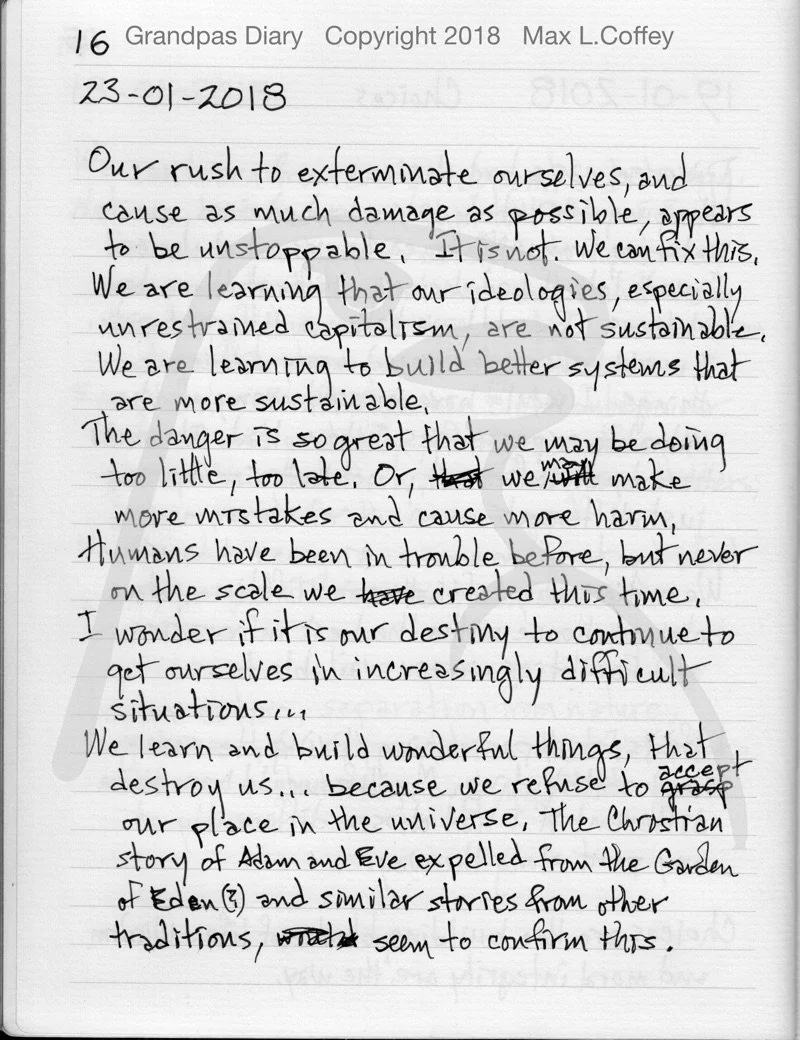 16 Grandpas Diary Copyright 2018 Max L.Coffey
23-01-2018
Our rush to exterminate ourselves, and
cause as much damage as possible, appears
to be unstoppable. It is not. We can fix this.
We are learning that our ideologies, especially
unrestrained capitalism, are not sustainable.
We are learning to build better systems that
are more sustainable.
The danger is so great that we may be doing
too little, too late. Or, that we may will make
more mistakes and cause more harm.
Humans have been in trouble before, but never
on the scale we have created this time.
I wonder if it is our destiny to continue to
get ourselves in increasingly difficult
situations...
We learn and build wonderful things, that
destroy us... because we refuse to accept grasp
our place in the universe. The Chrostian
story of Adam and Eve expelled from the Garden
of Eden (?) and similar stories from other
traditions, seem to confirm this.